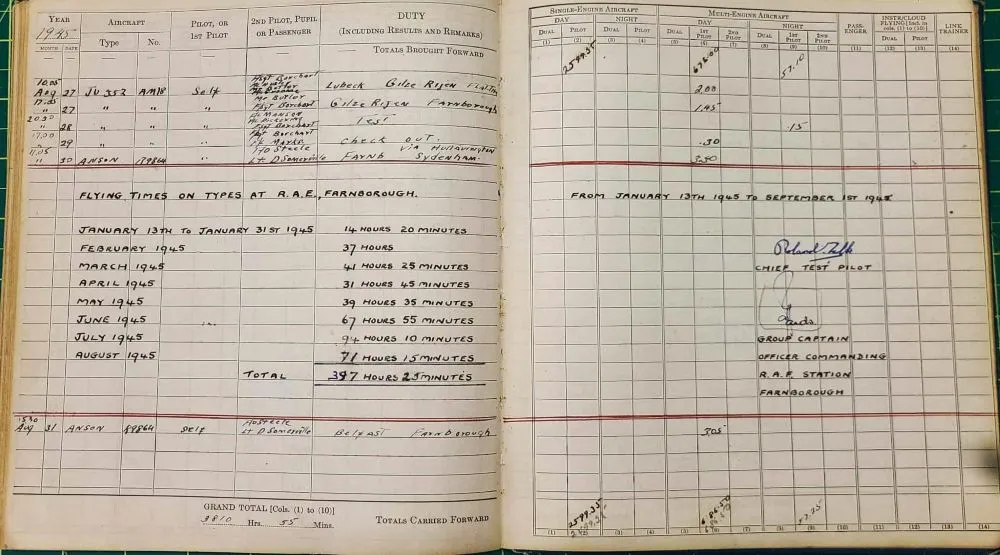 YEAR
1945
AIRCRAFT
PILOT, OR
1ST PILOT
2ND PILOT, PUPIL
OR PASSENGER
DUTY
(INCLUDING RESULTS AND REMARKS)
MONTH DATE Type No.
TOTALS BROUGHT FORWARD
10.05
Aug 27 JU 352 AM18 Self Lubeck Gilze Rijen
17.05
" 27 " " " Mr Butler Gilze Rijen Farnborough
20.30
" 28 " " " Test
17.00
" 29 " " " Check out.
11.05
" 30 ANSON " Lt D Somerville Farnb via Hullavington Sydenham
FLYING TIMES ON TYPES AT R.A.E., FARNBOROUGH.
JANUARY 13TH TO JANUARY 31ST 1945 14 HOURS 20 MINUTES
FEBRUARY 1945 37 HOURS
MARCH 1945 41 HOURS 25 MINUTES
APRIL 1945 31 HOURS 45 MINUTES
MAY 1945 39 HOURS 35 MINUTES
JUNE 1945 67 HOURS 55 MINUTES
JULY 1945 94 HOURS 10 MINUTES
AUGUST 1945 71 HOURS 15 MINUTES
TOTAL 397 HOURS 25 MINUTES
Aug 31 ANSON Self Lt D Somerville Belfast Farnborough
GRAND TOTAL [Cols. (1) to (10)]
3810 Hrs. 55 Mins.
TOTALS CARRIED FORWARD
SINGLE-ENGINE AIRCRAFT
MULTI-ENGINE AIRCRAFT
PASS-
ENGER
INSTR/CLOUD
FLYING [Incl. in
cols. (1) to (10)]
LINK
TRAINER
DAY NIGHT DAY NIGHT
DUAL PILOT DUAL PILOT DUAL 1ST PILOT 2ND PILOT DUAL 1ST PILOT 2ND PILOT DUAL PILOT
(1) (2) (3) (4) (5) (6) (7) (8) (9) (10) (11) (12) (13) (14)
2599.35 57.10
2.00
1.45
.15
.30
FROM JANUARY 13TH 1945 TO SEPTEMBER 1ST 1945
Roland Falk
CHIEF TEST PILOT
GROUP CAPTAIN
OFFICER COMMANDING
R.A.F. STATION
FARNBOROUGH
3.05
2599.35 686.50 57.25
(1) (3) (4) (5) (7) (8) (9) (10) (11) (12) (13) (14)